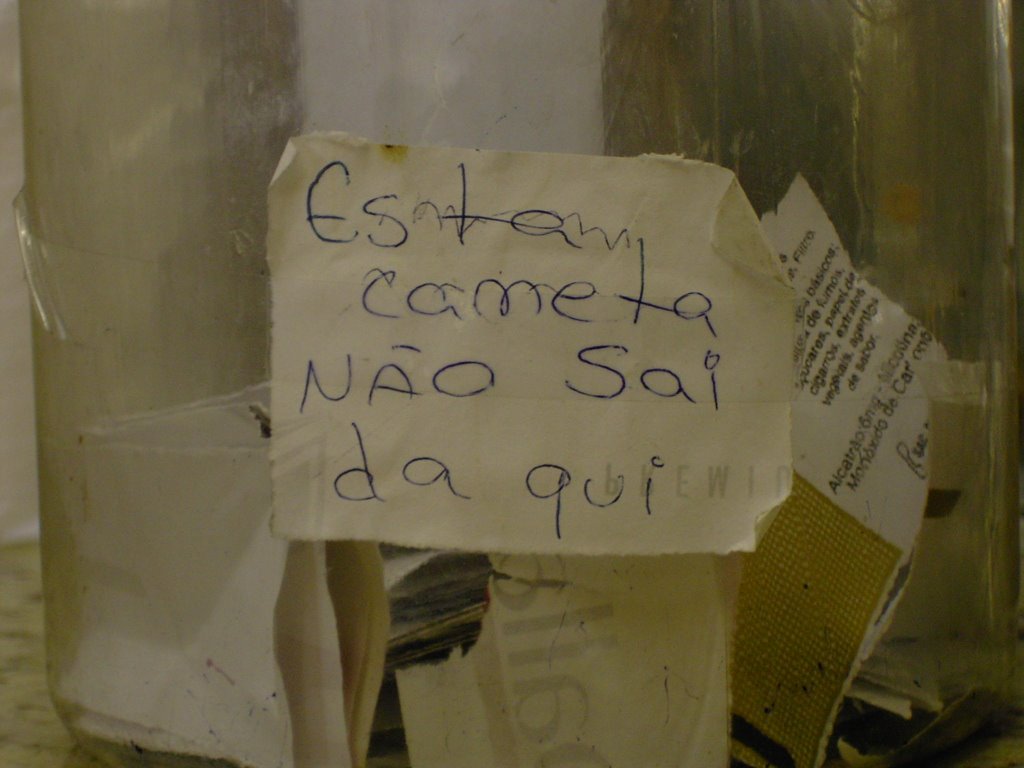 Estan
carreta
NÃO Sai
da qui
PREMIU
e, Filtro
básicos:
de fumos,
açúcares, papel de
cigarro, extratos
vegetais, agentes
de sabor.
Alcatrão 6mg - Nicotina
Monóxido de Car